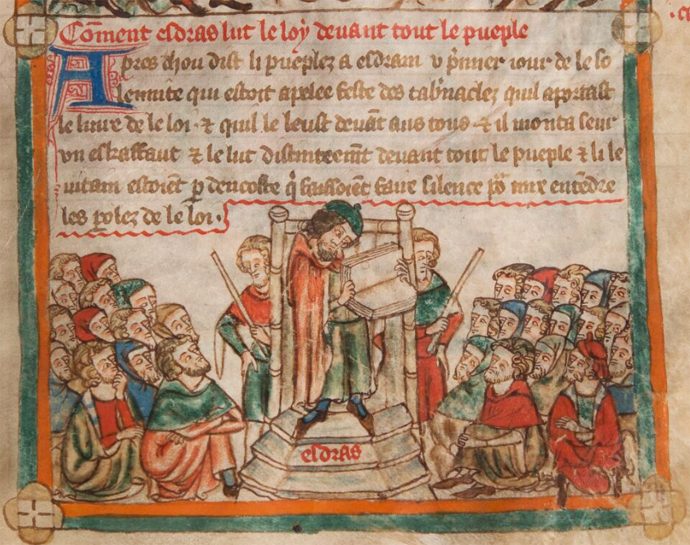 Coment esdras lut le loy deuant tout le pueple
Apres chou dist li pueplez a esdram v p̃mier iour de le so
lennite qui estoit apelee feste des tab'naclez quil aportast
le liure de le loi · ⁊ quil le leust deuãt aus tous · ⁊ il monta seur
vn eskaffaut ⁊ le lut distinteem̃t deuant tout le pueple ⁊ li le
uitam estoiẽt ꝑ dencoste q̃ faisoiẽt faire silence põ mix entẽdre
les ꝑolez de le loi ·
esdras